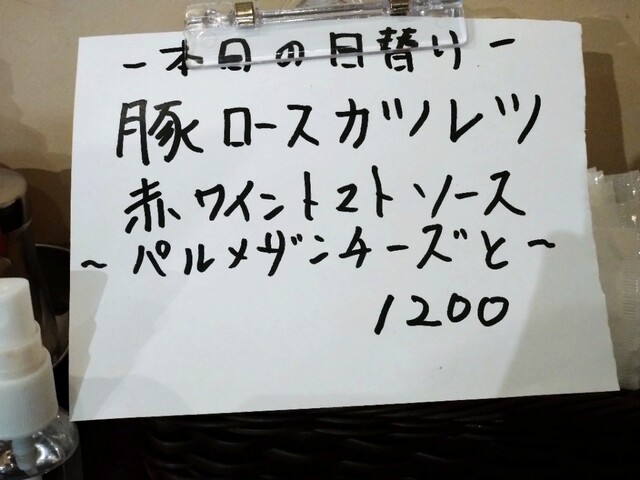 -本日の日替り-
豚ロースガルレツ
赤ワイントマトソース
~パルメザンチーズと~
1200